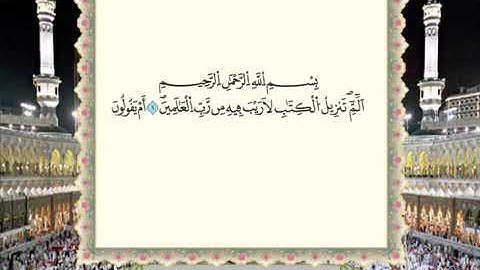 بِسْمِ اِ۬للَّهِ اِ۬لرَّحْمَٰنِ اِ۬لرَّحِيمِ
أَلَٓمِّٓۖ تَنزِيلُ اُ۬لْكِتَٰبِ لَا رَيْبَ فِيهِ مِن رَّبِّ اِ۬لْعَٰلَمِينَۖ ١ أَمْ يَقُولُونَ